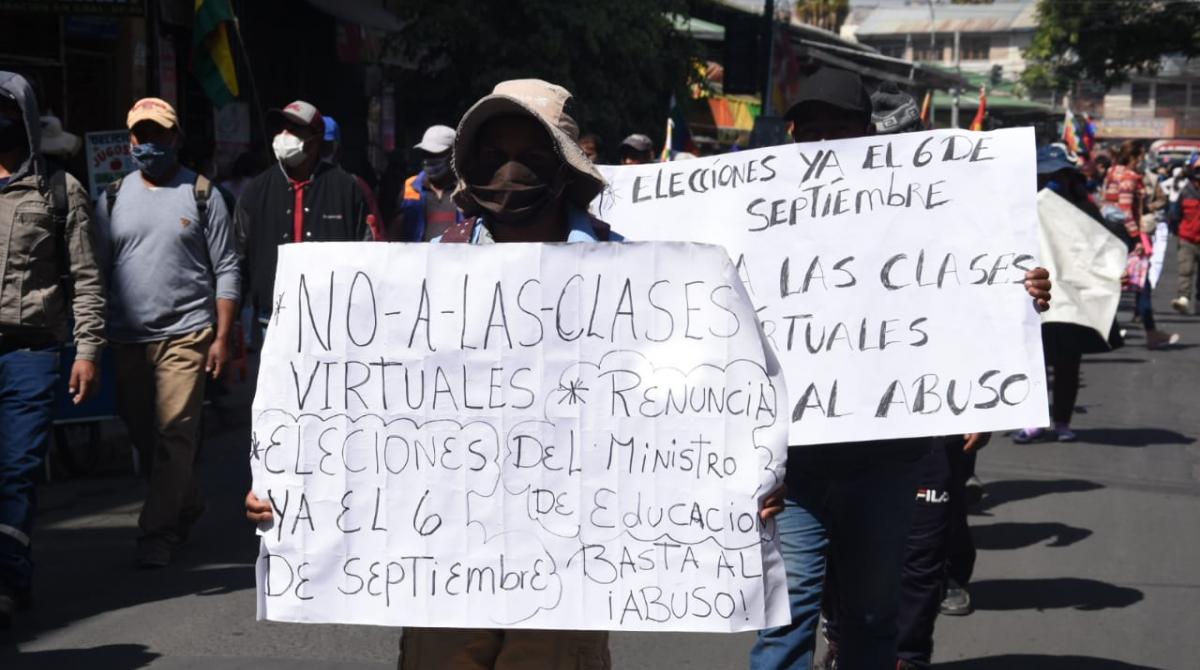 *NO-A-LAS-CLASES
VIRTUALES * RENUNCIA
*ELECCIONES DEL MINISTRO
YA EL 6 DE EDUCACION
DE SEPTIEMBRE BASTA AL
¡ABUSO!
* ELECCIONES YA EL 6 DE
SEPTIEMBRE
A LAS CLASES
RTUALES
AL ABUSO
JUGOS
FILA